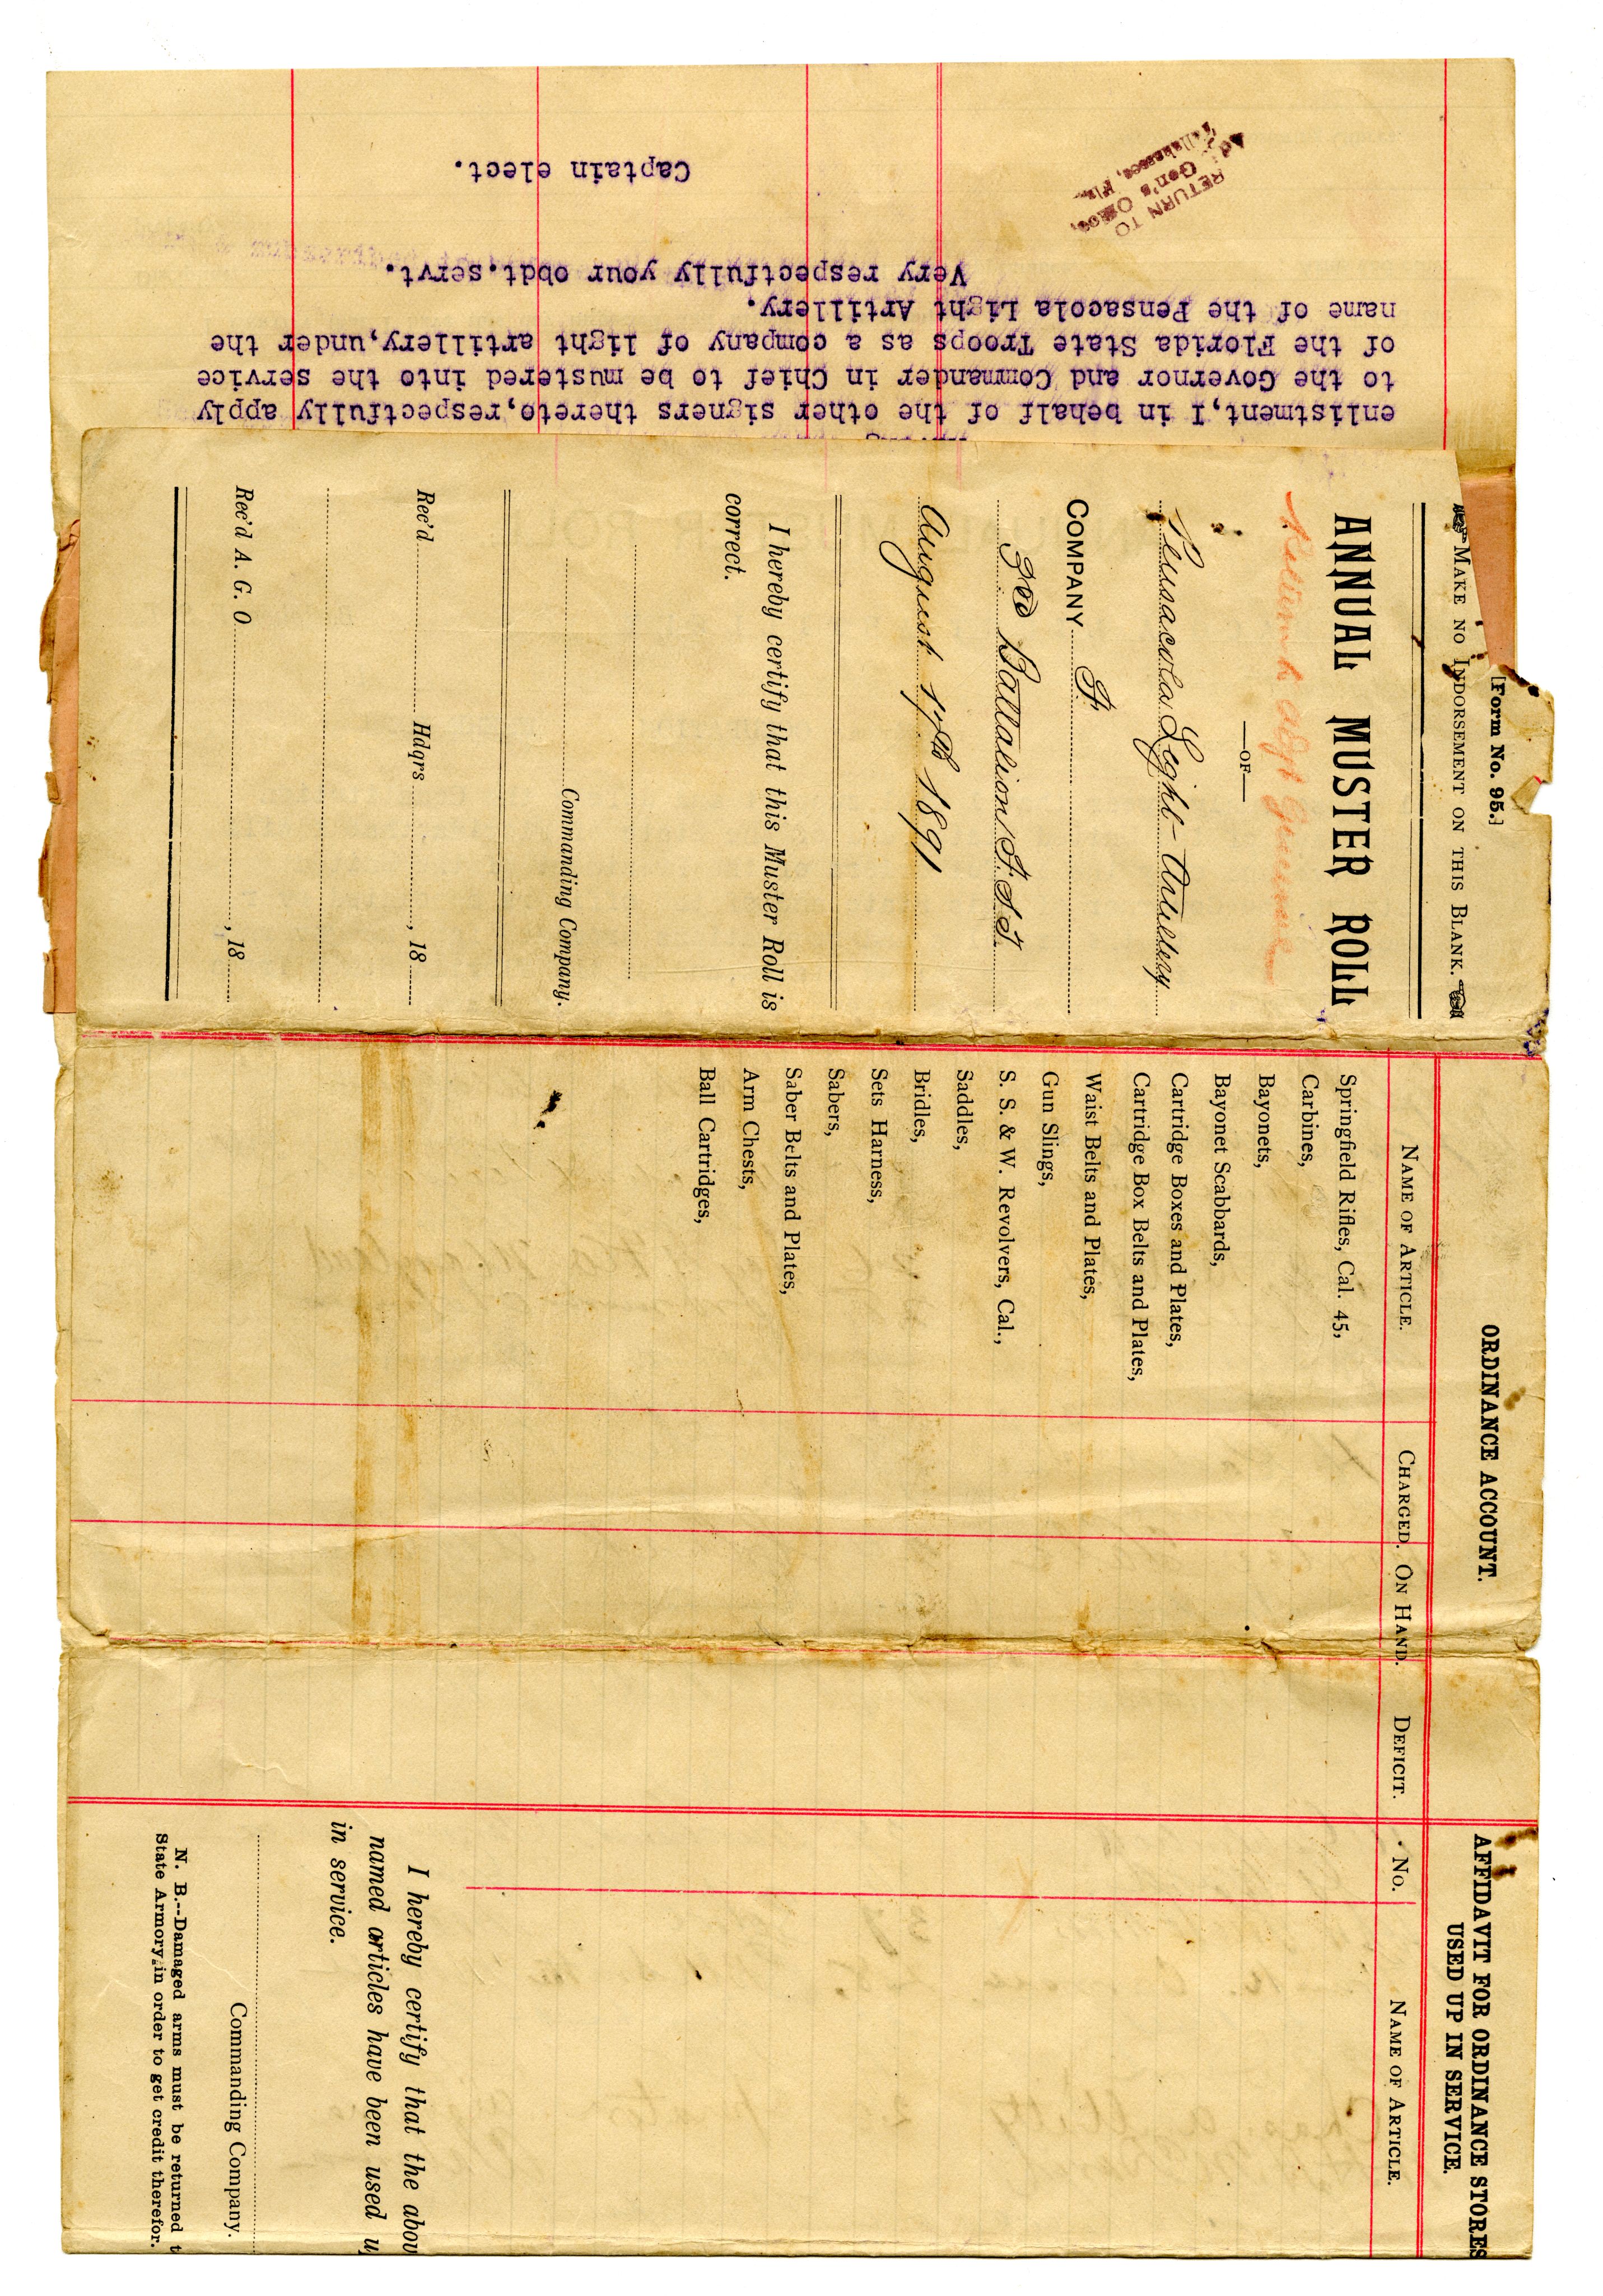 enlistment,I, in behalf of the other signers thereto,respectfully apply
to the Governor and Commander in Chief to be mustered into the service
of the Florida State Troops as a company of light artillery,under the
name of the Pensacola Light Artillery.
Very respectfully your obdt.servt.
Captain elect.
RETURN TO
Adj. Gen's Office,
Tallahassee, Fla.
[Form No. 95.]
MAKE NO INDORSEMENT ON THIS BLANK.
ANNUAL MUSTER ROLL
Return to Adjt General
—OF—
Pensacola Light Artillery
COMPANY F
3rd Battalion F.S.T.
August 17th 1891
I hereby certify that this Muster Roll is
correct.
Commanding Company.
Rec'd Hdqrs , 18
Rec'd A. G. O , 18
ORDINANCE ACCOUNT.
NAME OF ARTICLE. CHARGED. ON HAND. DEFICIT.
Springfield Rifles, Cal. 45,
Carbines,
Bayonets,
Bayonet Scabbards,
Cartridge Boxes and Plates,
Cartridge Box Belts and Plates,
Waist Belts and Plates,
Gun Slings,
S. S. & W. Revolvers, Cal.,
Saddles,
Bridles,
Sets Harness,
Sabers,
Saber Belts and Plates,
Arm Chests,
Ball Cartridges,
AFFIDAVIT FOR ORDINANCE STORES
USED UP IN SERVICE.
No. NAME OF ARTICLE.
I hereby certify that the abov
named articles have been used u
in service.
Commanding Company.
N. B.--Damaged arms must be returned t
State Armory in order to get credit therefor.